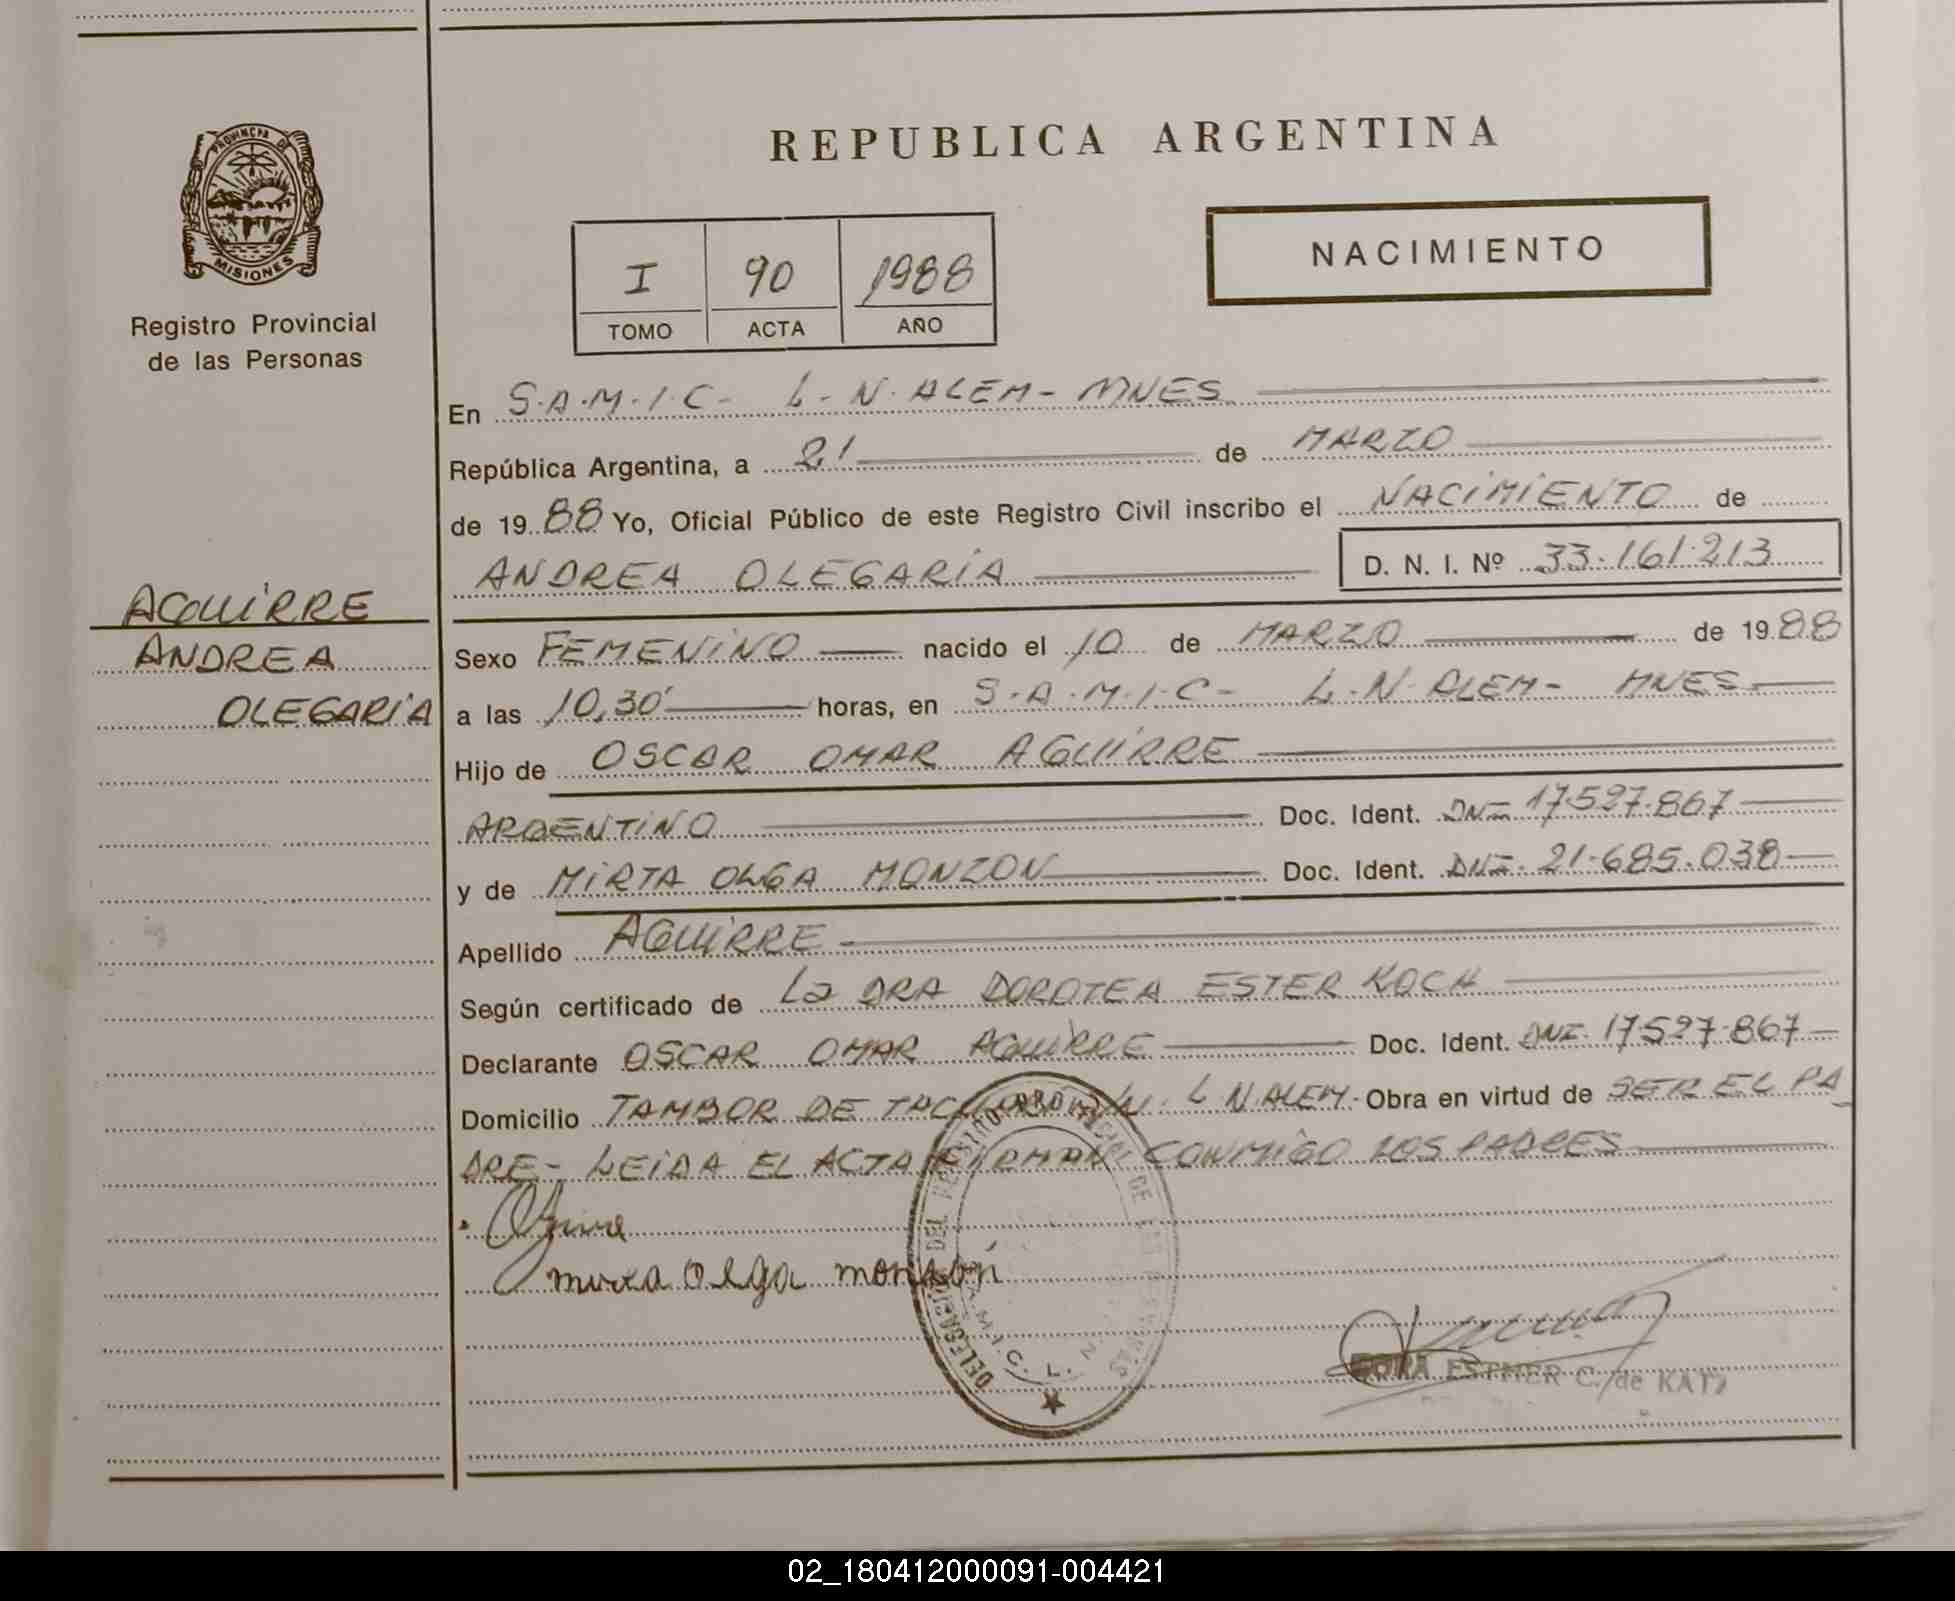 REPUBLICA ARGENTINA
PROVINCIA DE
MISIONES
Registro Provincial
de las Personas
I 90 1988
TOMO ACTA AÑO
NACIMIENTO
En S.A.M.I.C- L.N.ALEM- MNES
República Argentina, a 21 de MARZO
de 1988 Yo, Oficial Público de este Registro Civil inscribo el NACIMIENTO de
ANDREA OLEGARIA D. N. I. Nº 33.161.213
AGUIRRE
ANDREA
OLEGARIA
Sexo FEMENINO nacido el 10 de MARZO de 1988
a las 10,30 horas, en S.A.M.I.C- L.N.ALEM- MNES
Hijo de OSCAR OMAR AGUIRRE
ARGENTINO Doc. Ident. DNI 17.527.867
y de MIRTA OLGA MONZON Doc. Ident. DNI. 21.685.038
Apellido AGUIRRE
Según certificado de La DRA DOROTEA ESTER KOCH
Declarante OSCAR OMAR AGUIRRE Doc. Ident. DNI. 17.527.867
Domicilio TAMBOR DE L N.ALEM. Obra en virtud de SER EL PA
DRE- LEIDA EL ACTA FIRMAN CONMIGO LOS PADRES
mirta olga monzón
DELEGACIÓN DEL REGISTRO PROVINCIAL DE LAS PERSONAS
S.A.M.I.C. L. N.
ESTHER C. de KATZ
02_180412000091-004421